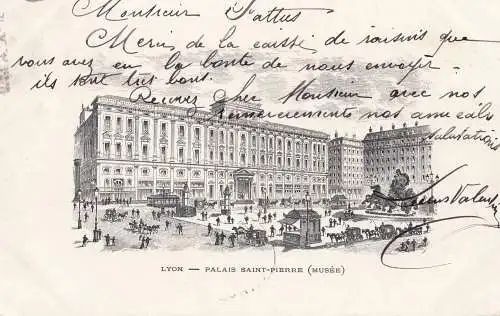 Monsieur
Merci de la caisse de raisins que
vous avez eu la bonté de nous envoyer.
ils sont très bons.
Recevez cher Monsieur avec nos
remerciements nos amicales
salutations
LYON — PALAIS SAINT-PIERRE (MUSÉE)